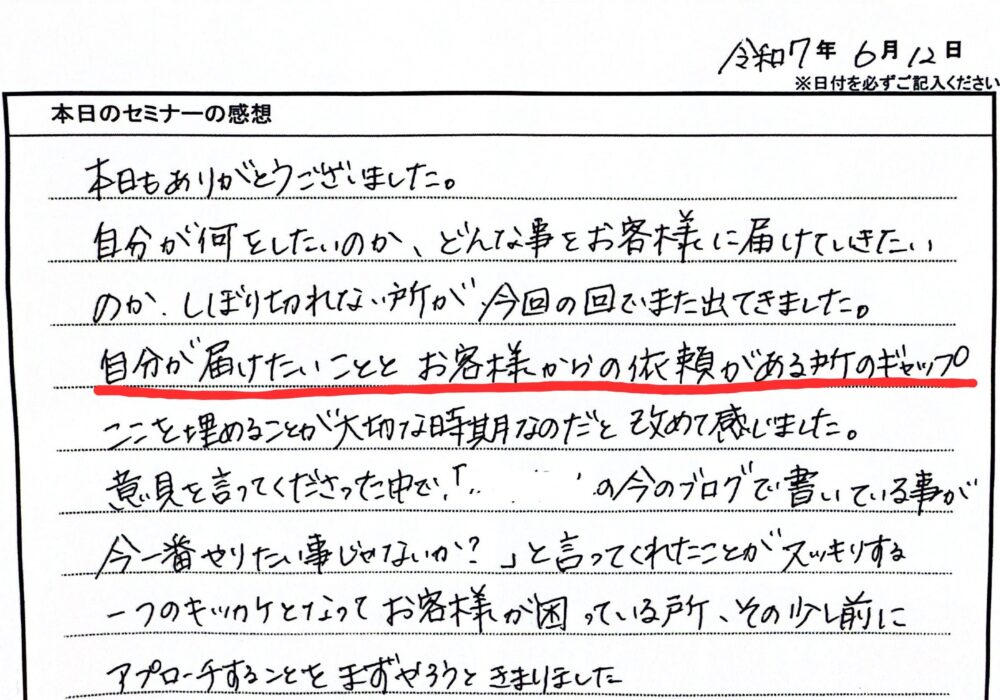 令和7年 6月12日
※日付を必ずご記入ください
本日のセミナーの感想
本日もありがとうございました。
自分が何をしたいのか、どんな事をお客様に届けていきたい
のか、しぼり切れない所が、今回の回でまた出てきました。
自分が届けたいことと お客様からの依頼がある所のギャップ
ここを埋めることが大切な時期なのだと 改めて感じました。
意見を言ってくださった中で、「 の今のブログで書いている事が
今一番やりたい事じゃないか?」と言ってくれたことがスッキリする
一つのキッカケとなって お客様が困っている所、その少し前に
アプローチすることを まずやろうと きまりました